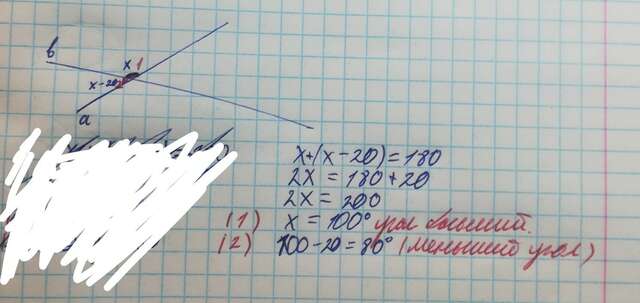 в
x 1
x-20 2
a
x+(x-20)=180
2x = 180+20
2x = 200
(1) x = 100° угол больший.
(2) 100-20=80° (меньший угол)